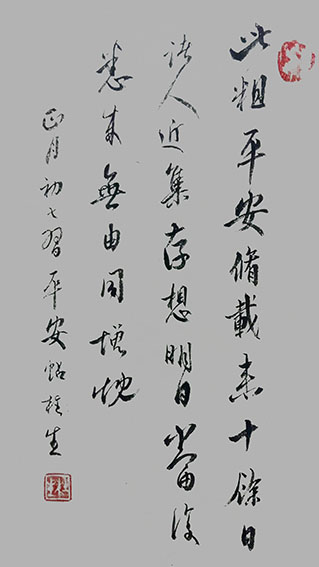 此粗平安脩載来十餘日
諸人近集存想明日當復
悉来無由同增慨
正月初七習平安帖桂生